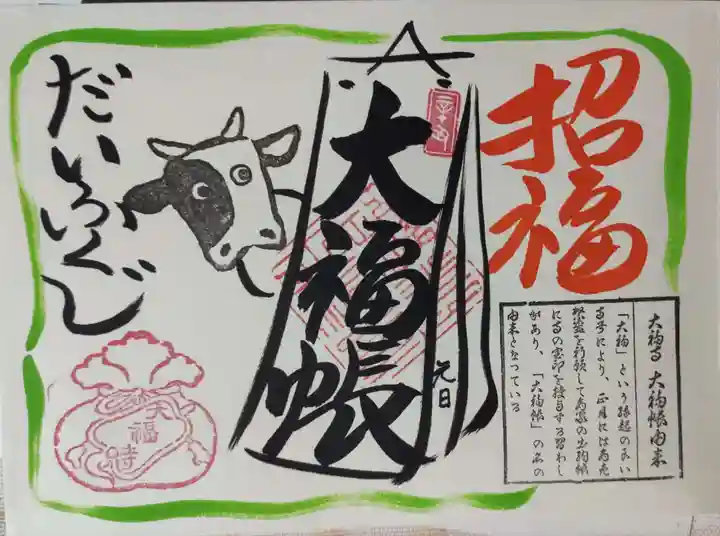 招福
大福寺 大福帳由来
「大福」という縁起のよい
寺号により、正月には商売
繁盛を祈願して商家の出納帳
に寺の宝印を授与する習わし
があり、「大福帳」の名の
由来となつている
大福帳
元日
だいふくじ
大福